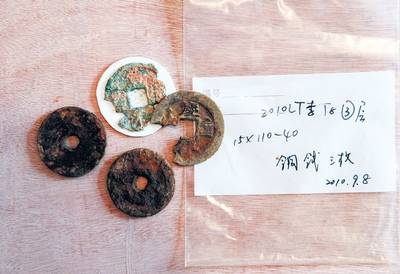 2010LT李T8③层
15X110-40
铜钱三枚
2010.9.8